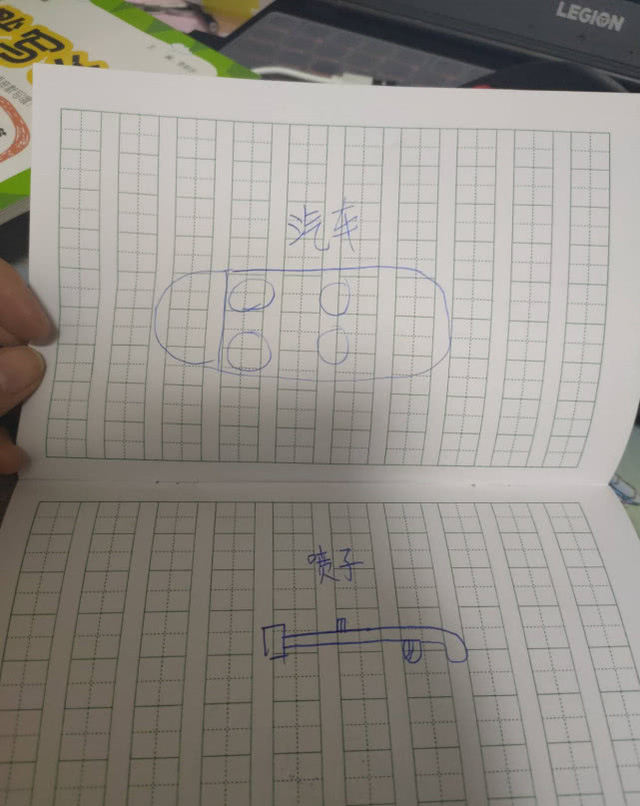 LEGION
汽车
喷子